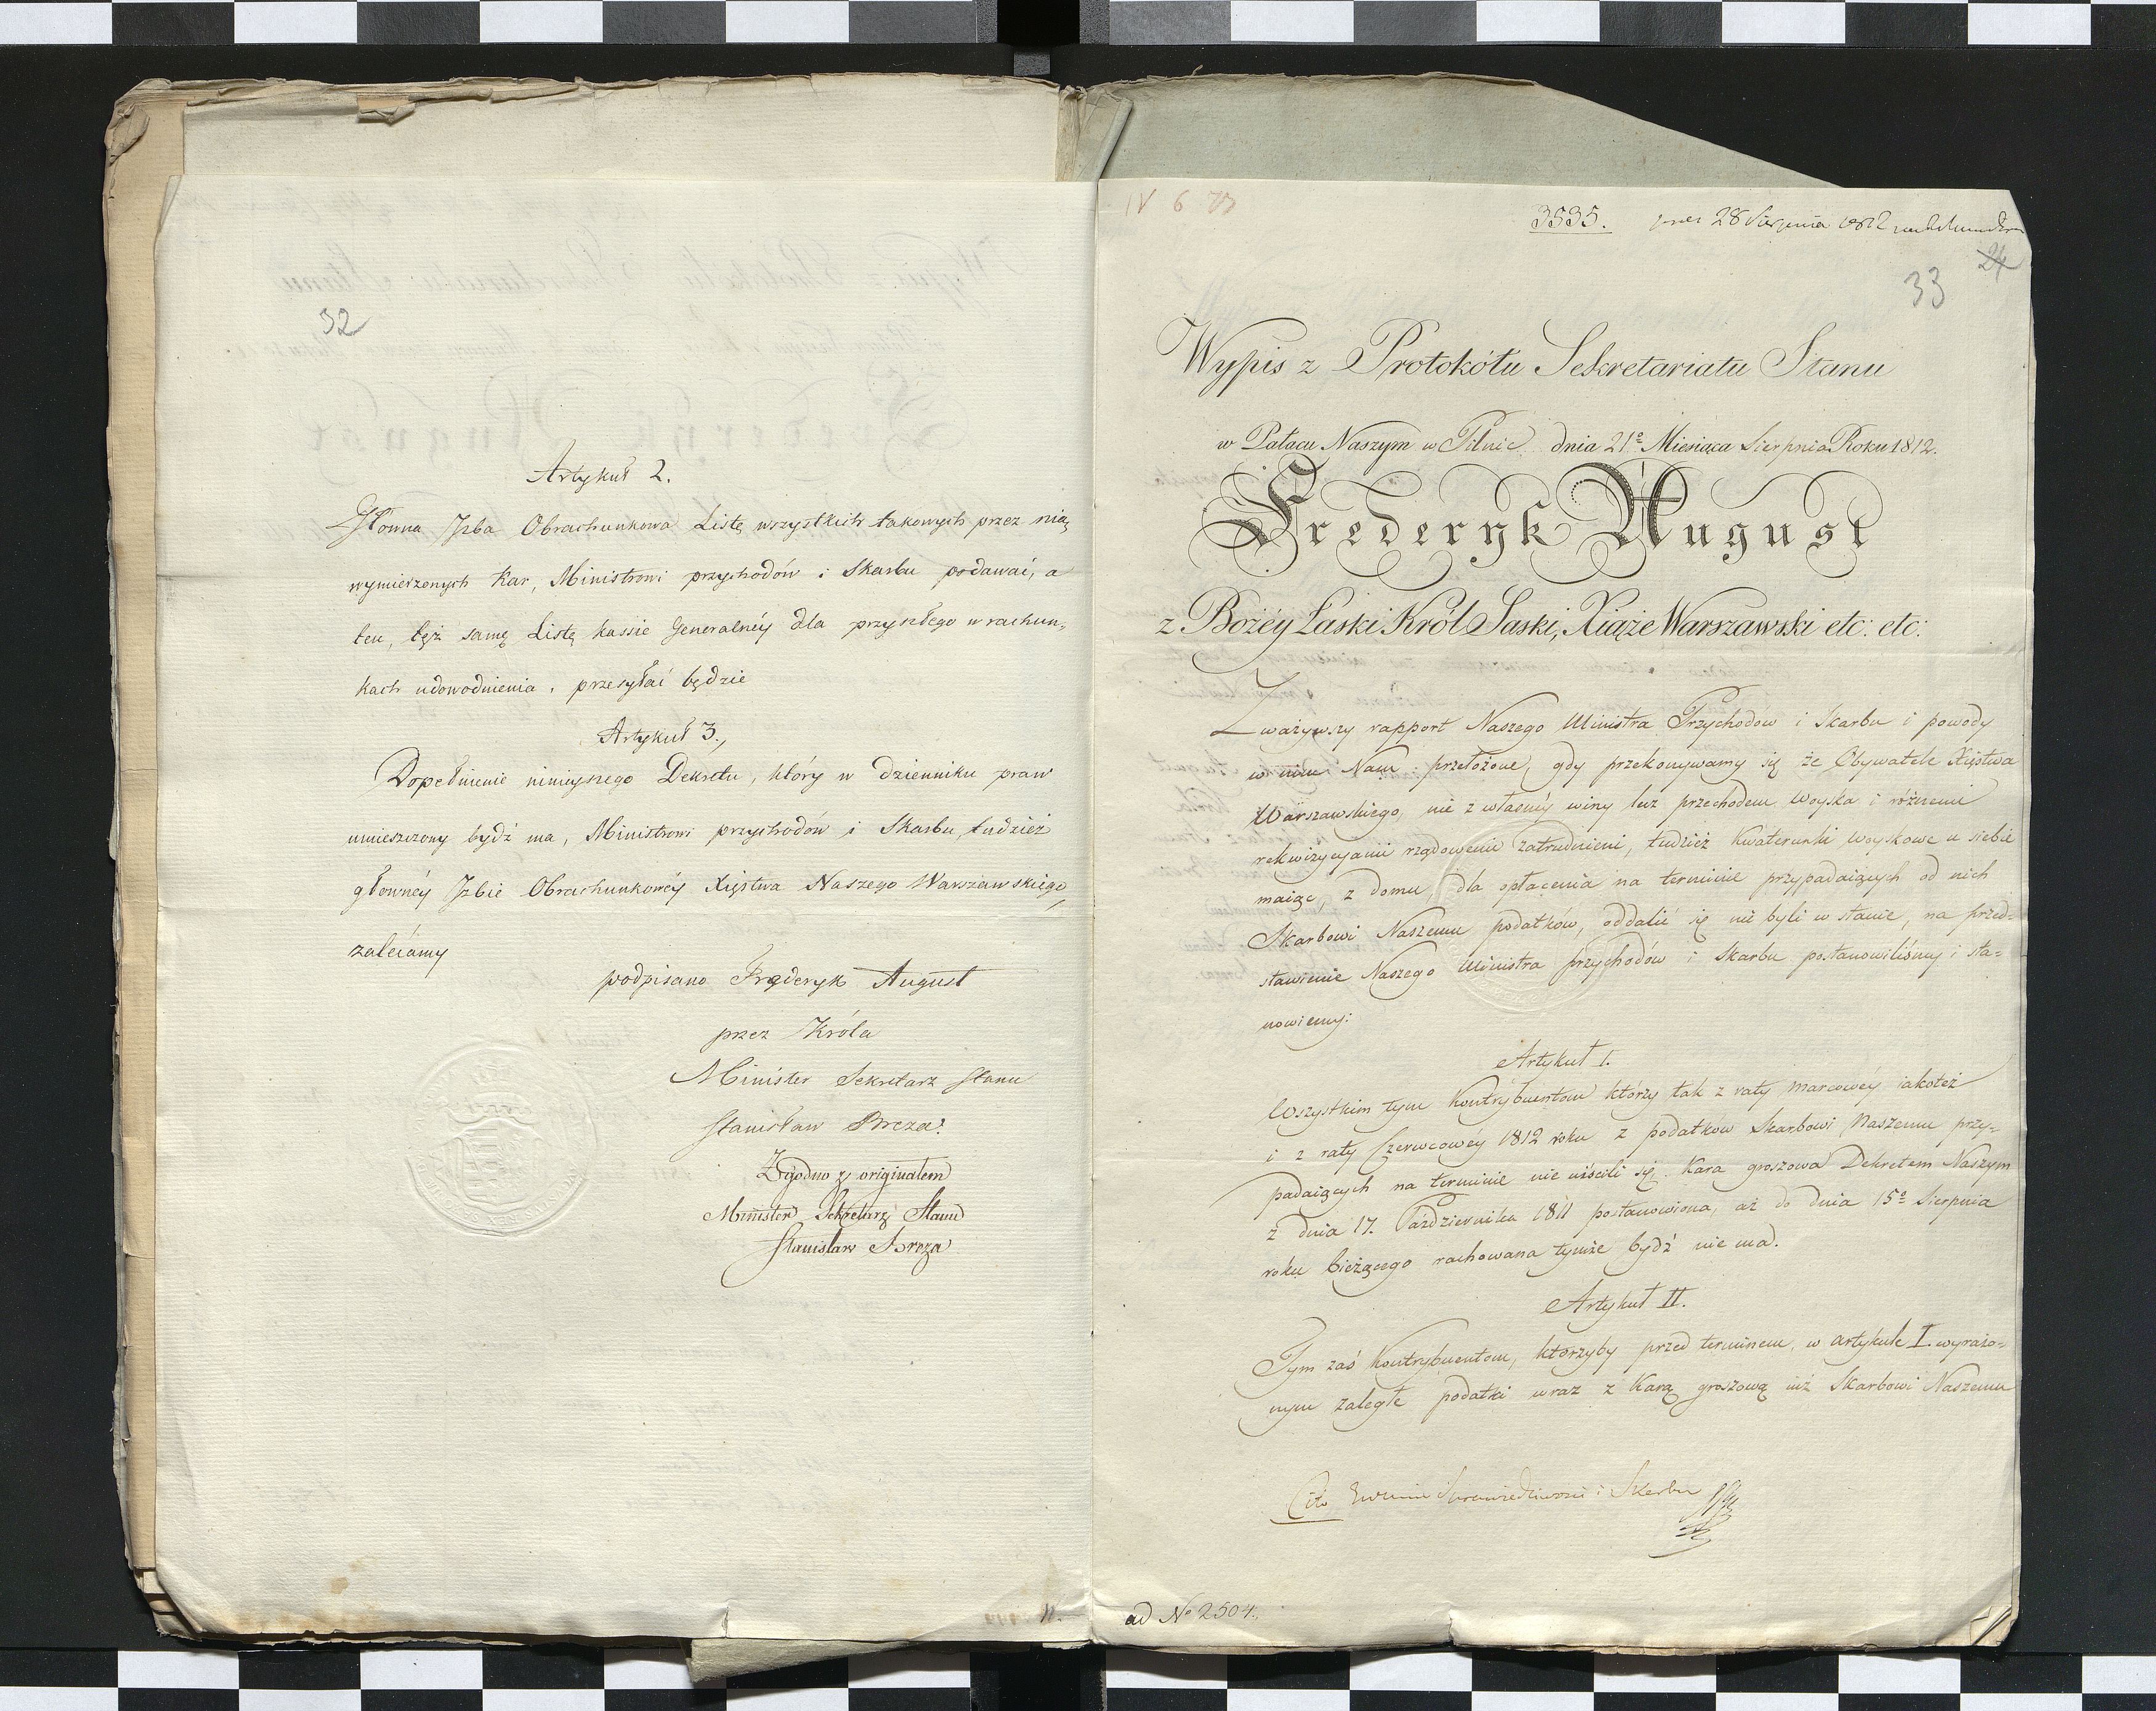 32
Artykuł 2.
Główna Jzba Obrachunkowa Listę wszystkich takowych przez nią
wymierzonych Kar, Ministrowi przychodów i Skarbu podawać, a
ten, tęż samę Listę Kassie Generalnéy dla przyszłego w rachun-
kach udowodnienia, przesyłać będzie
Artykuł 3.,
Dopełnienie ninieyszego Dekretu, który w dzienniku praw
umieszczony bydź ma, Ministrowi przychodów i Skarbu, tudzież
głownéy Jzbie Obrachunkowéy Xięstwa Naszego Warszawskiego,
zalecamy
podpisano Fryderyk August
przez Króla
Minister Sekretarz Stanu
Stanisław Breza.
Zgodno z originałem
Minister Sekretarz Stanu
Stanisław Breza
IV 6 73
3535. pres 28 Sierpnia 1812
24
33
Wypis z Protokółu Sekretariatu Stanu
w Pałacu Naszym w Pilnic. dnia 21º Miesiąca Sierpnia Roku 1812.
Frederyk August
z Bożéy Łaski Król Saski, Xiąże Warszawski etc: etc:
Zważywszy rapport Naszego Ministra Przychodow i Skarbu i powody
w nim Nam przełożone, gdy przekonywamy się że Obywatele Xięstwa
Warszawskiego, nie z własnéy winy lecz przechodem Woyska i różnemi
rekwizycyami rządowemi zatrudnieni, tudzież Kwaterunki woyskowe u siebie
maiąc, z domu, dla opłacenia na terminie przypadaiących od nich
Skarbowi Naszemu podatków, oddalić się nie byli w stanie, na przed-
stawienie Naszego Ministra przychodów i Skarbu postanowiliśmy i sta-
nowiemy:
Artykuł I.
Wszystkim tym Kontrybuentom którzy tak z raty marcowéy iakotéż
i z raty Czerwcowéy 1812 roku z podatkow Skarbowi Naszemu przy-
padaiących na terminie nie uiścili się. Kara groszowa Dekretem Naszym
z dnia 17. Października 1811 postanowiona, aż do dnia 15º Sierpnia
roku bieżącego rachowana tymże bydź nie ma.
Artykuł II.
Tym zaś Kontrybuentom, którzyby przed terminem, w artykule I. wyrażo-
nym zaległe podatki wraz z Karą groszową iuż Skarbowi Naszemu
Cito Sprawiedliwości i Skarbu
ad Nº 2504.